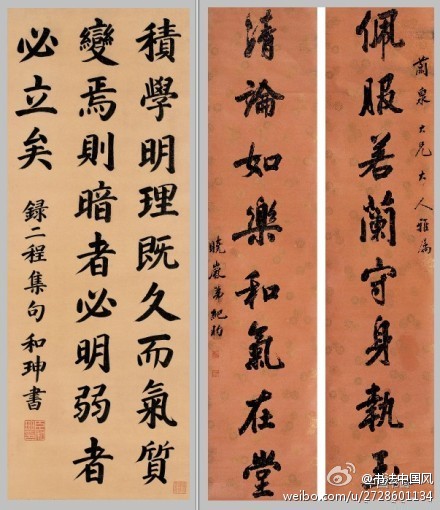 積學明理既久而氣質
變焉則暗者必明弱者
必立矣
録二程集句 和珅書
泉大兄大人雅屬
佩服若蘭守身執玉
清論如樂和氣在堂
曉嵐弟紀昀
@书法中国网
weibo.com/u/2728601134